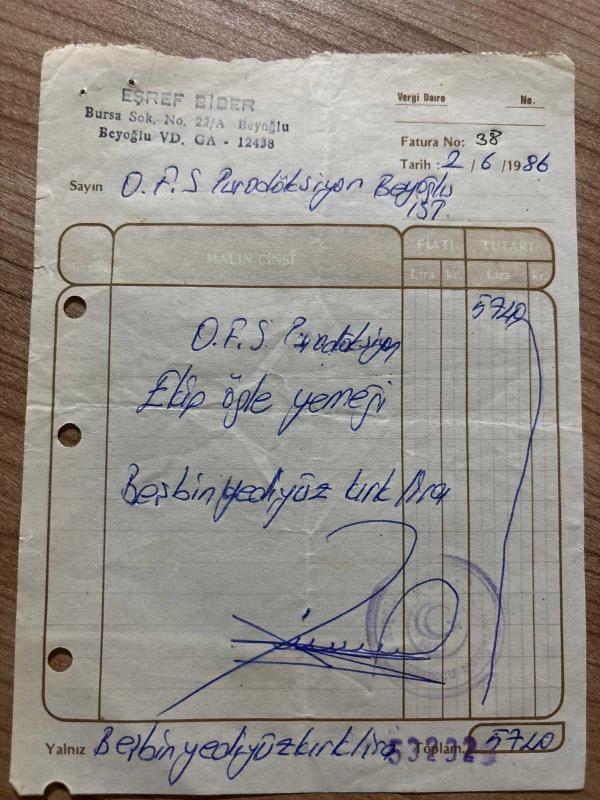 EŞREF BİBER
Bursa Sok. No. 22/A Beyoğlu
Beyoğlu VD. GA - 12438
Vergi Daire No.
Fatura No: 38
Tarih : 2 / 6 / 1986
Sayın O.F.S Purodöksiyon Beyoğlu
İST.
MALIN CİNSİ FİATI TUTARI
Lira kr. Lira kr.
5740
O.F.S. Purodoksiyon
Ekip öğle yemeği
Beşbinyediyüz kırk lira
Yalnız Beşbinyediyüzkırklira Toplam 5740